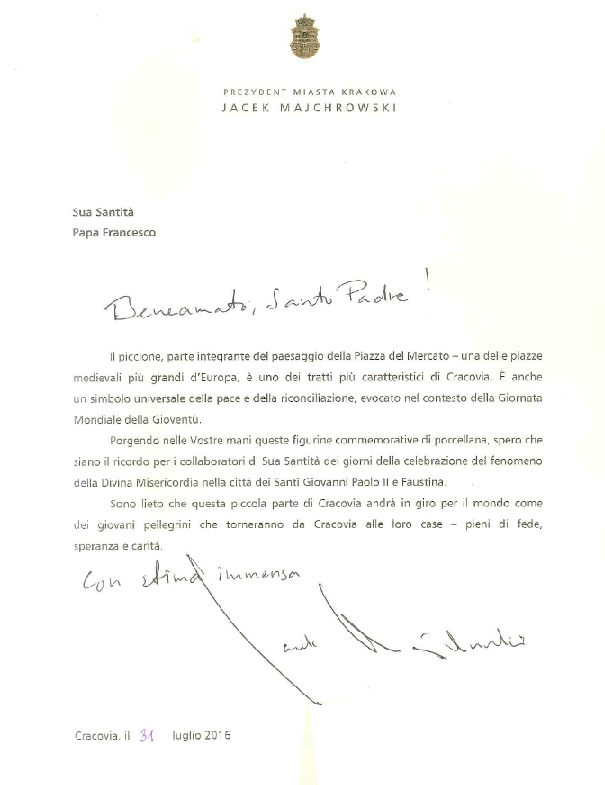 PREZYDENT MIASTA KRAKOWA
JACEK MAJCHROWSKI
Sua Santità
Papa Francesco
Beneamato, Santo Padre!
Il piccione, parte integrante del paesaggio della Piazza del Mercato – una delle piazze
medievali più grandi d'Europa, è uno dei tratti più caratteristici di Cracovia. È anche
un simbolo universale della pace e della riconciliazione, evocato nel contesto della Giornata
Mondiale della Gioventù.
Porgendo nelle Vostre mani queste figurine commemorative di porcellana, spero che
siano il ricordo per i collaboratori di Sua Santità dei giorni della celebrazione del fenomeno
della Divina Misericordia nella città dei Santi Giovanni Paolo II e Faustina.
Sono lieto che questa piccola parte di Cracovia andrà in giro per il mondo come
dei giovani pellegrini che torneranno da Cracovia alle loro case – pieni di fede,
speranza e carità.
Con stima immensa
Cracovia, il 31 luglio 2016